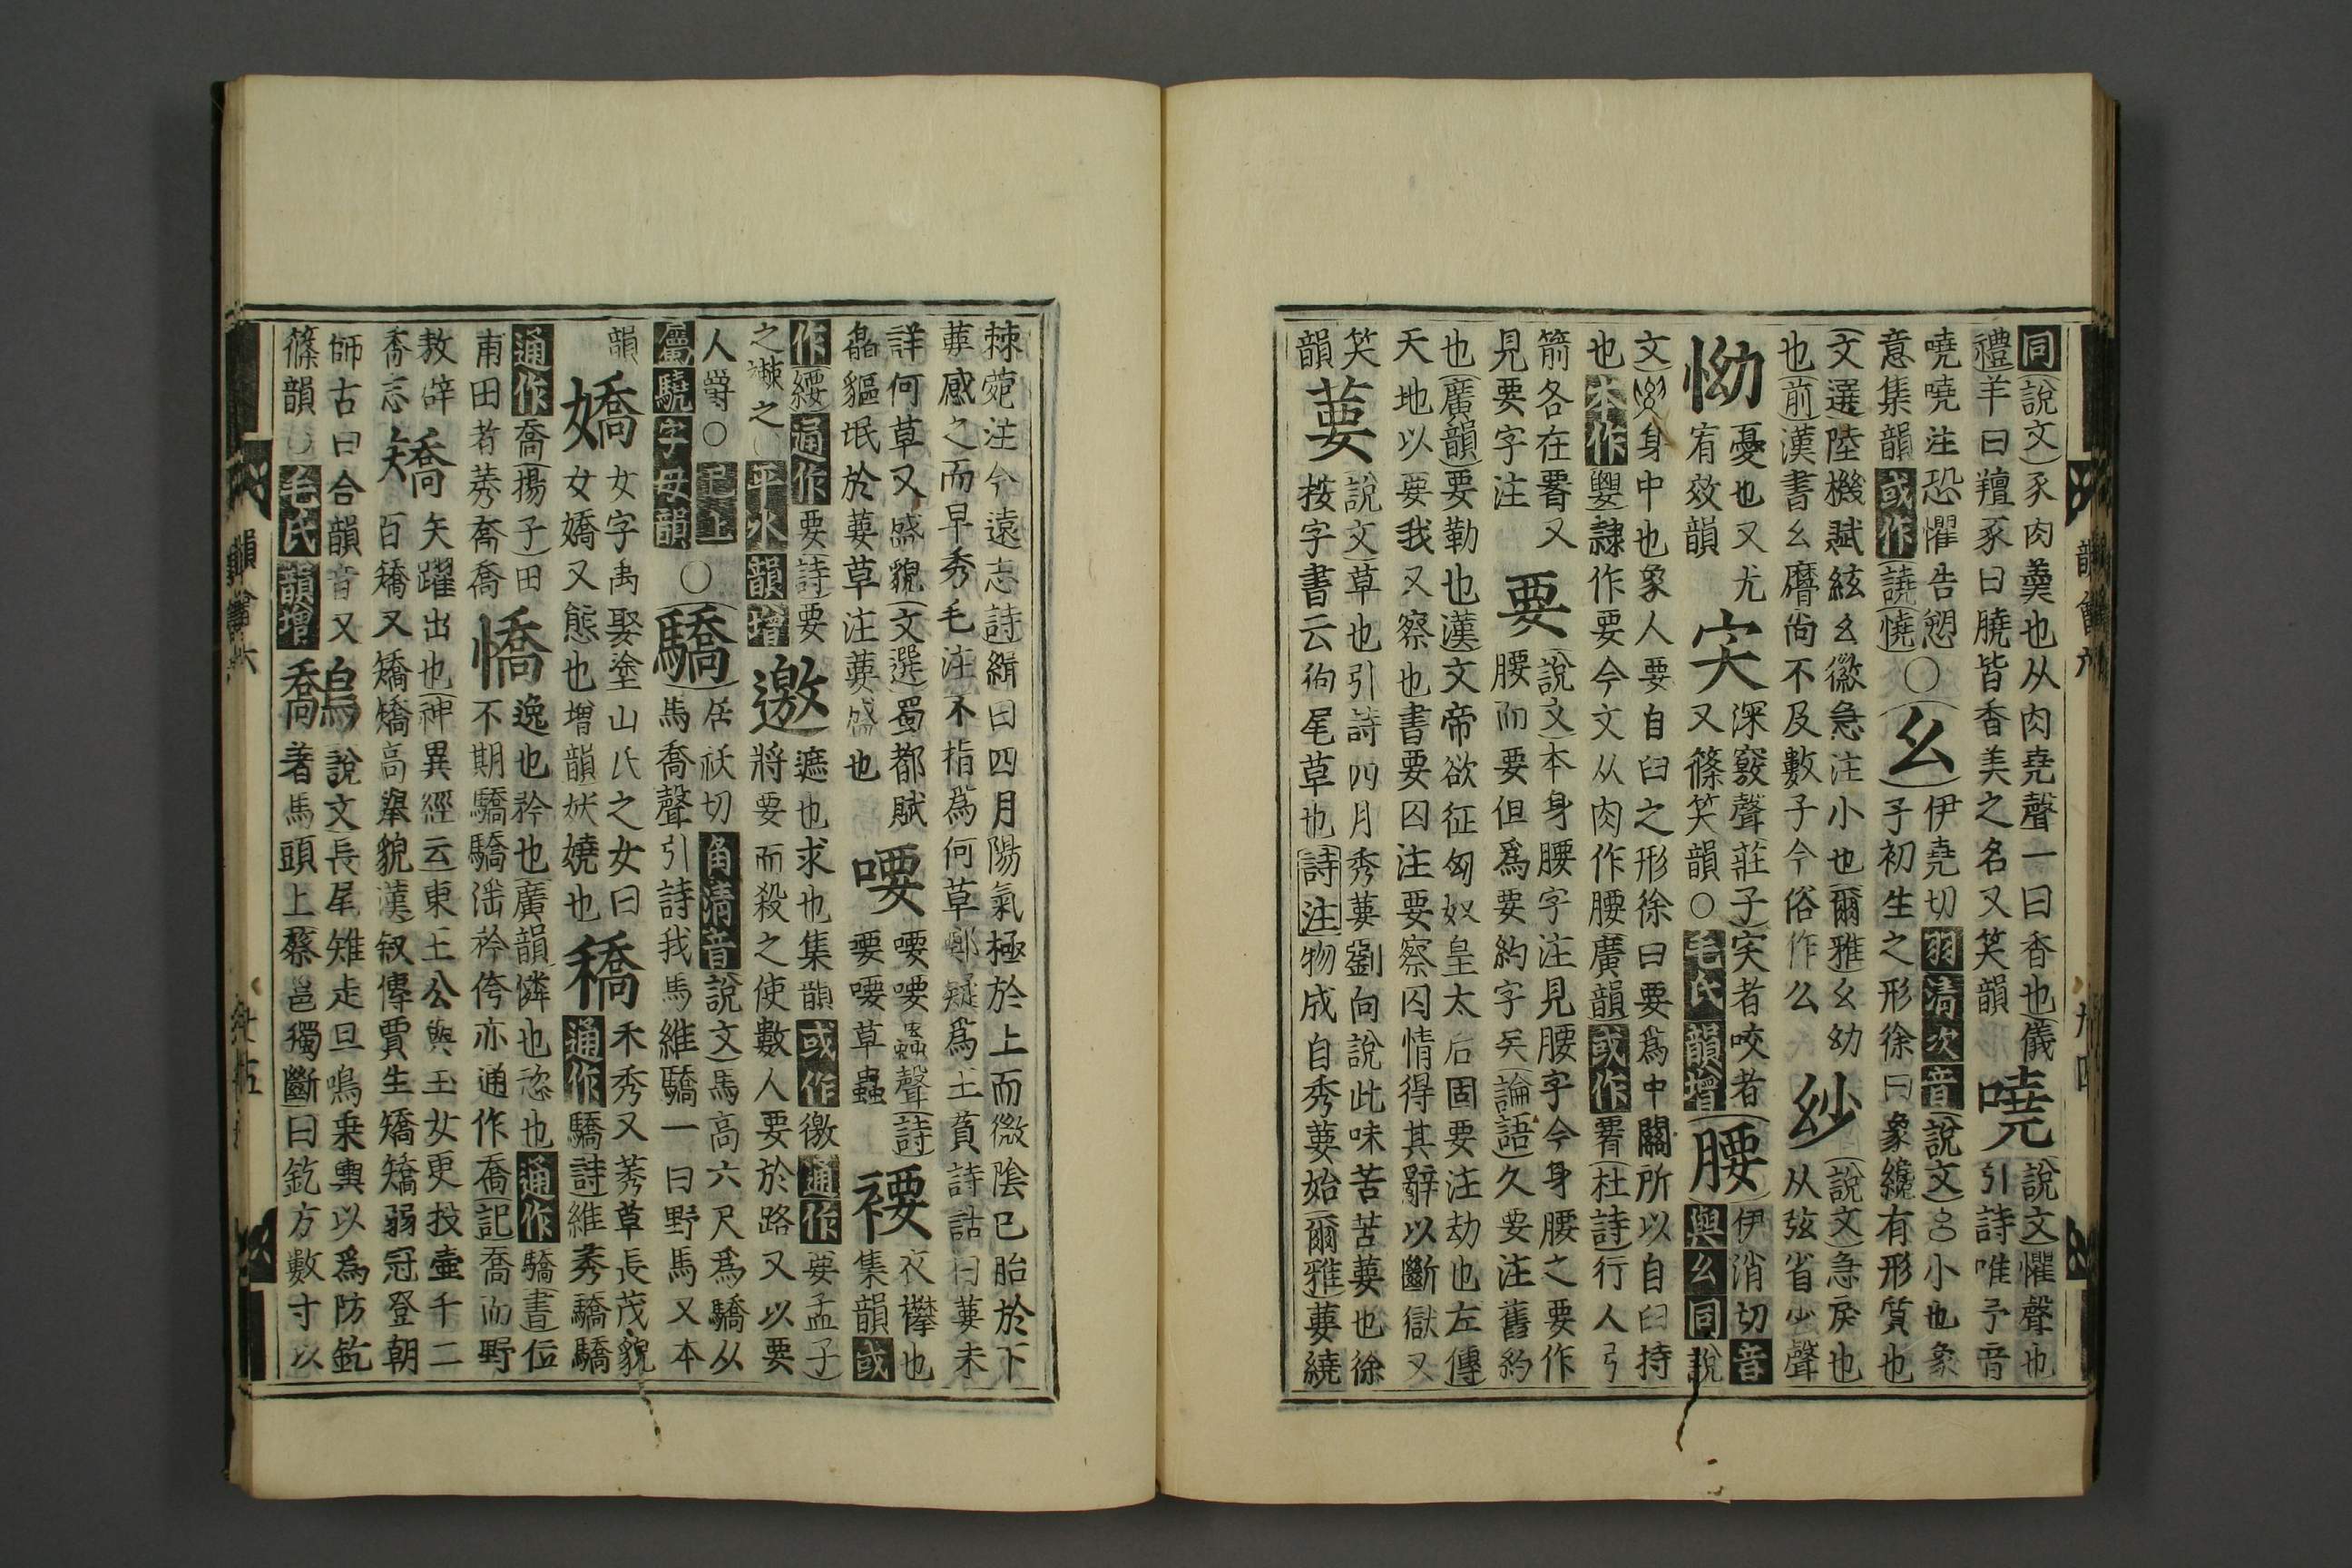 同說文豕肉羹也从肉堯聲一曰香也儀
禮羊曰羶豕曰膮皆香美之名又笑韻
嘵
說文懼聲也
引詩唯予音
嘵嘵注恐懼告愬
意集韻或作譊憢
○幺
伊堯切羽清次音說文小也象
子初生之形徐曰象纔有形質也
文選陸機賦絃幺徽急注小也爾雅幺幼
也前漢書幺麿尚不及數子今俗作么
說文急戾也
从弦省少聲
怮
憂也又尤
宥效韻
宎
深竅聲莊子宎者咬者
又篠笑韻○毛氏韻增
腰
伊消切音
與幺同說
文身中也象人要自臼之形徐曰要爲中關所以自臼持
也本作隷作要今文从肉作腰廣韻或作杜詩行人弓
箭各在又
見要字注
要
說文本身腰字注見腰字今身腰之要作
腰而要但爲要約字矣論語久要注舊約
也廣韻要勒也漢文帝欲征匈奴皇太后固要注劫也左傳
天地以要我又察也書要囚注要察囚情得其辭以斷獄又
笑
韻
葽
說文草也引詩四月秀葽劉向說此味苦苦葽也徐
按字書云狗尾草也詩注物成自秀葽始爾雅葽繞
韻會六
棘蒬注今遠志詩緝曰四月陽氣極於上而微陰已胎於下
葽感之而早秀毛注不指爲何草鄭疑爲王萯詩詁曰葽未
詳何草又盛貌文選蜀都賦
皛貙氓於葽草注葽盛也
喓
喓喓蟲聲詩
喓喓草蟲
衣襻也
集韻或
作通作要詩要
之襋之平水韻增
邀
遮也求也集韻或作徼通作要孟子
將要而殺之使數人要於路又以要
人爵○已上
屬驍字母韻
○驕
居祅切角清音說文馬高六尺爲驕从
馬喬聲引詩我馬維驕一曰野馬又本
韻
嬌
女字禹娶塗山氏之女曰
女嬌又態也增韻妖嬈也
穚
禾秀又莠草長茂貌
通作驕詩維莠驕驕
通作喬揚子田
甫田者莠喬喬
憍
逸也矜也廣韻憐也恣也通作驕書位
不期驕驕淫矜侉亦通作喬記喬而野
敖辟
喬志
矯
矢躍出也神異經云東王公與玉女更投壺千二
百矯又矯矯高舉貌漢叙傳賈生矯矯弱冠登朝
師古曰合韻音又
篠韻○毛氏韻增
鷮
說文長尾雉走且鳴乗輿以爲防釳
著馬頭上蔡邕獨斷曰釳方數寸以
韻會六